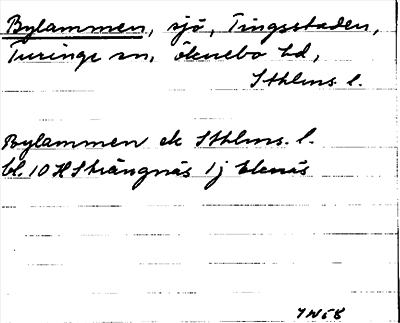 Bylammen, sjö, Tingsstaden,
Turinge sn, Öknebo hd,
Sthlms. l.
Bylammen ek Sthlms. l.
bl. 10 H Strängnäs 1j Ekenäs